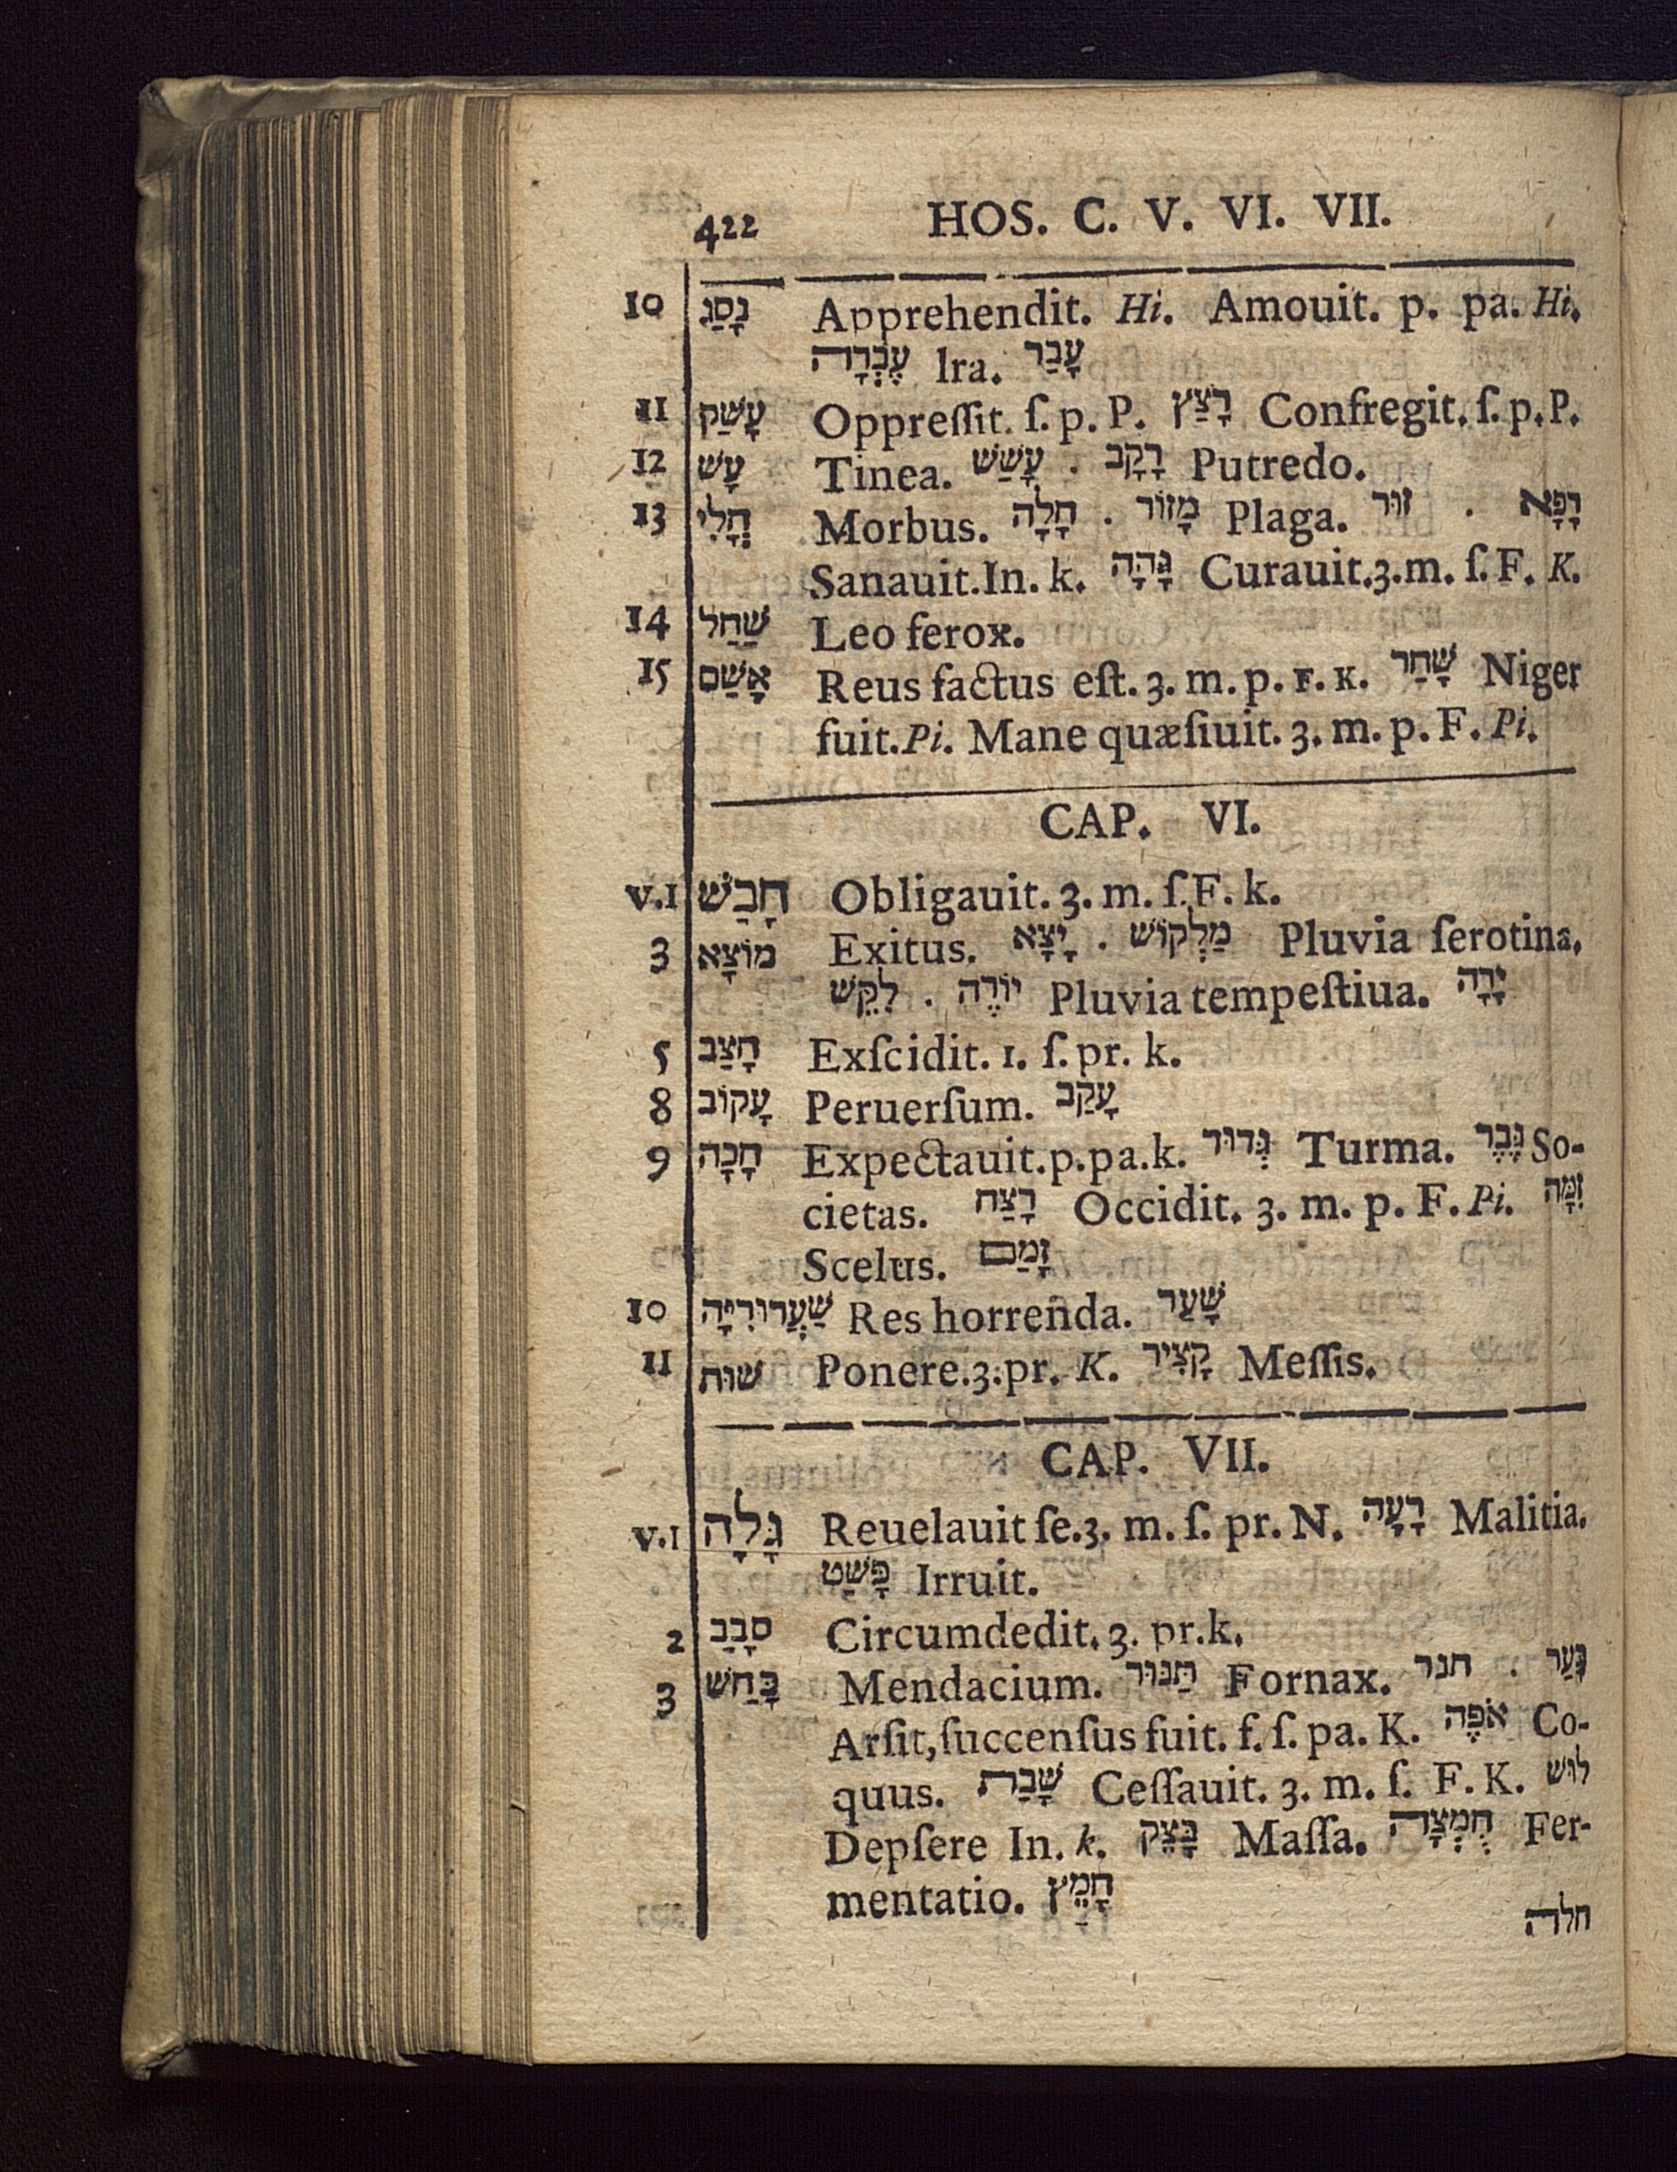 422 HOS. C. V. VI. VII.
10 נָסַג Apprehendit. Hi. Amouit. p. pa. Hi.
עֶבְרָה Ira. עָבַר
11 עָשַׁק Oppreſſit. ſ. p. P. רָצַץ Confregit. ſ. p. P.
12 עָשׁ Tinea. עָשַׁשׁ . רָקָב Putredo.
13 חֳלִי Morbus. חָלָה . מָזוֹר Plaga. זוּר . רָפָא
Sanauit. In. k. גָּהָה Curauit. 3. m. ſ. F. K.
14 שַׁחַל Leo ferox.
15 אָשַׁם Reus factus eſt. 3. m. p. F. K. שָׁחַר Niger
fuit. Pi. Mane quæſiuit. 3. m. p. F. Pi.
CAP. VI.
V. 1 חָבַשׁ Obligauit. 3. m. ſ. F. k.
3 מוֹצָא Exitus. יָצָא . מַלְקוֹשׁ Pluvia ſerotina.
לִקֵּשׁ . יוֹרֶה Pluvia tempeſtiua. יָרָה
5 חָצַב Exſcidit. 1. ſ. pr. k.
8 עָקוֹב Peruerſum. עָקַב
9 חָכָה Expectauit. p. pa. k. גְּדוּד Turma. גֶּבֶר So-
cietas. רָצַח Occidit. 3. m. p. F. Pi. זִמָּה
Scelus. זָמַם
10 שַׁעֲרוּרִיָּה Res horrenda. שָׁעַר
11 שׁוּת Ponere. 3. pr. K. קָצִיר Meſſis.
CAP. VII.
V. 1 גָּלָה Reuelauit ſe. 3. m. ſ. pr. N. רָעָה Malitia.
פָּשַׁט Irruit.
2 סָבַב Circumdedit. 3. pr. k.
3 כָּחַשׁ Mendacium. תַּנּוּר Fornax. תנר . בָּעַר
Arſit, ſuccenſus fuit. f. ſ. pa. K. אֹפֶה Co-
quus. שָׁבַת Ceſſauit. 3. m. ſ. F. K. לוּשׁ
Depſere In. k. בָּצֵק Maſſa. חֻמְצָה Fer-
mentatio. חָמֵץ
חלה